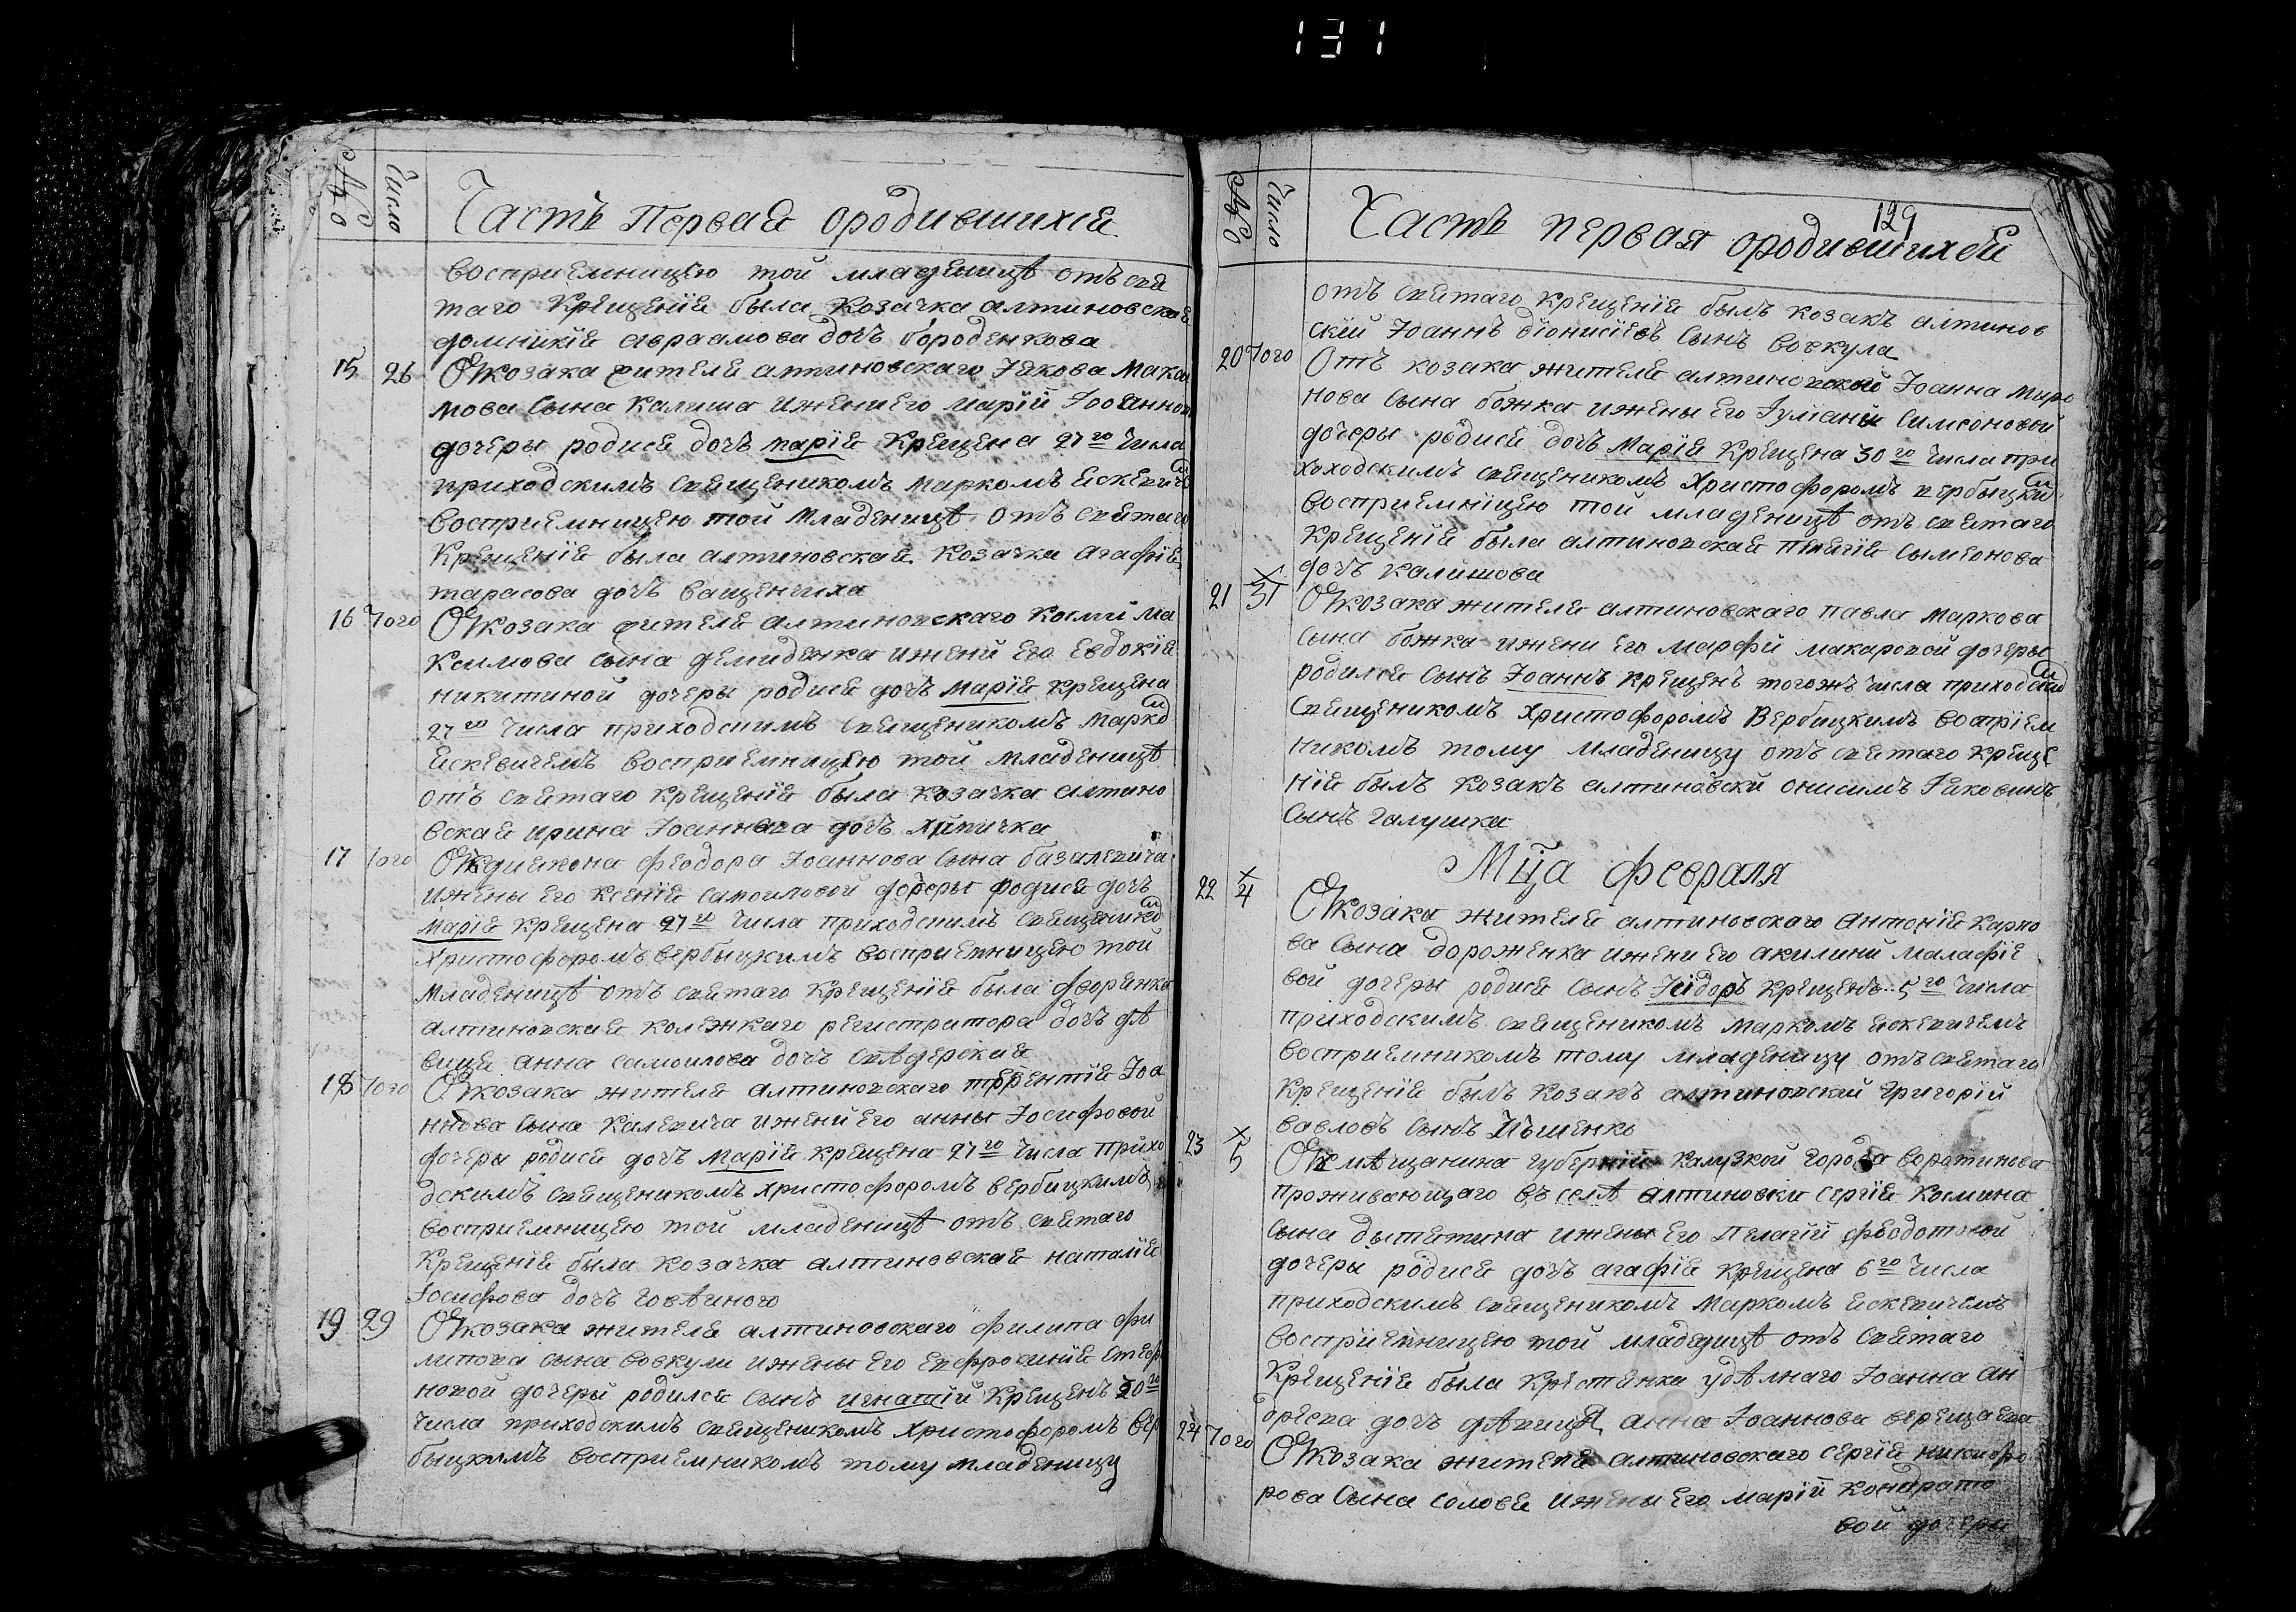 131
№
Число
Часть Первая ородившихся
восприемницею той младеницѣ отъ свя
таго крещенія была козачка алтиновская
домникія авраамова дочъ бороденкова
15 26 От козака жителя алтиновскаго Іакова Макси
мова сына Калиша ижени его марій Іоанновой
дочеры родися дочъ марія крещена 27го числа
приходскимъ священикомъ маркомъ Ескевичемъ
восприемницею той младеницѣ отъ святаго
крещенія была алтиновская козачка агафія
тарасова дочъ
16 Того От козака жителя алтиновскаго косми ма
ксимова сына демиденка ижени его Евдокіи
никитиной дочеры родися дочъ марія крещена
27го числа приходскимъ священикомъ марко
Ескевичемъ восприемницею той младеницѣ
отъ святаго крещенія была козачка алтино
вская ирина Іоаннова дочъ
17 Того От дияк‌она феодора Іоаннова сына базилевича
ижены его ксеніи самоиловой дочеры родися дочъ
марія крещена 27го числа приходскимъ священикомъ
христофоромъ вербыцкимъ восприемницею той
младеницѣ отъ святаго крещенія была дворянка
алтиновская колежкаго регистратора дочъ дѣ
вица анна самоилова дочъ свѣдерская
18 Того От козака жителя алтиновскаго терентія Іоа
ннова сына Калевича ижени его анны Іосифовой
дочеры родися дочъ марія крещена 27го числа прихо
дскимъ священикомъ христофоромъ вербицкимъ
восприемницею той младеницѣ отъ святаго
крещенія была козачка алтиновская наталія
Іосифова дочъ
19 29 От козака жителя алтиновскаго филипа фи
липова сына вовкули ижены его евфросиніи стефа
новой дочеры родился сынъ игнатій крещенъ 30го
числа приходскимъ священикомъ христофоромъ вер
быцкимъ восприемникомъ тому младеницу
№
Число
129
Часть первая ородившихся
отъ святаго крещенія былъ козакъ алтинов
скій Іоаннъ діонисіевъ сынъ вовкула
20 Того Отъ козака жителя алтиновскаго Іоанна миро
нова сына божка ижены его Іуліаніи симеоновой
дочеры родися дочъ марія крещена 30го числа при
ходскимъ священикомъ христофоромъ вербыцки
восприемницею той младеницѣ отъ святаго
крещенія была алтиновская пелагія сымеонова
дочъ калишова
21 31 От козака жителя алтиновскаго павла маркова
сына божка ижени его марфи макаровой дочеры
родился сынъ Іоаннъ крещенъ тогожъ числа приходски
священикомъ христофоромъ Вербицкимъ востріем
никомъ тому младеницу отъ святаго креще
нія былъ козакъ алтиновски онисимъ Іаковивъ
сынъ Галушка
Мца февраля
22 4 От козака жителя алтиновскаго антонія карпо
ва сына дороженка ижени его акилини малафіе
вой дочеры родися сынъ Ісідоръ крещенъ 5го числа
приходскимъ священикомъ маркомъ ескевичемъ
восприемникомъ тому младеницу отъ святаго
крещенія былъ козакъ алтиновский григорій
вавловъ сынъ
23 5 От мѣщанина губерній калузкой города воротинова
проживающаго въ селѣ алтиновки сергія космина
сына дытятина ижены его пелагіи феодотовой
дочеры родися дочъ агафія крещена 6го числа
приходскимъ священикомъ маркомъ ескевичемъ
воспріемницею той младеницѣ отъ святаго
крещенія была крестянка удѣлнаго Іоанна ан
дреева дочъ дѣвица анна Іоаннова
24 Того От козака жителя алтиновскаго сергія никифо
рова сына соловя ижени его марій кондрато
вой дочери